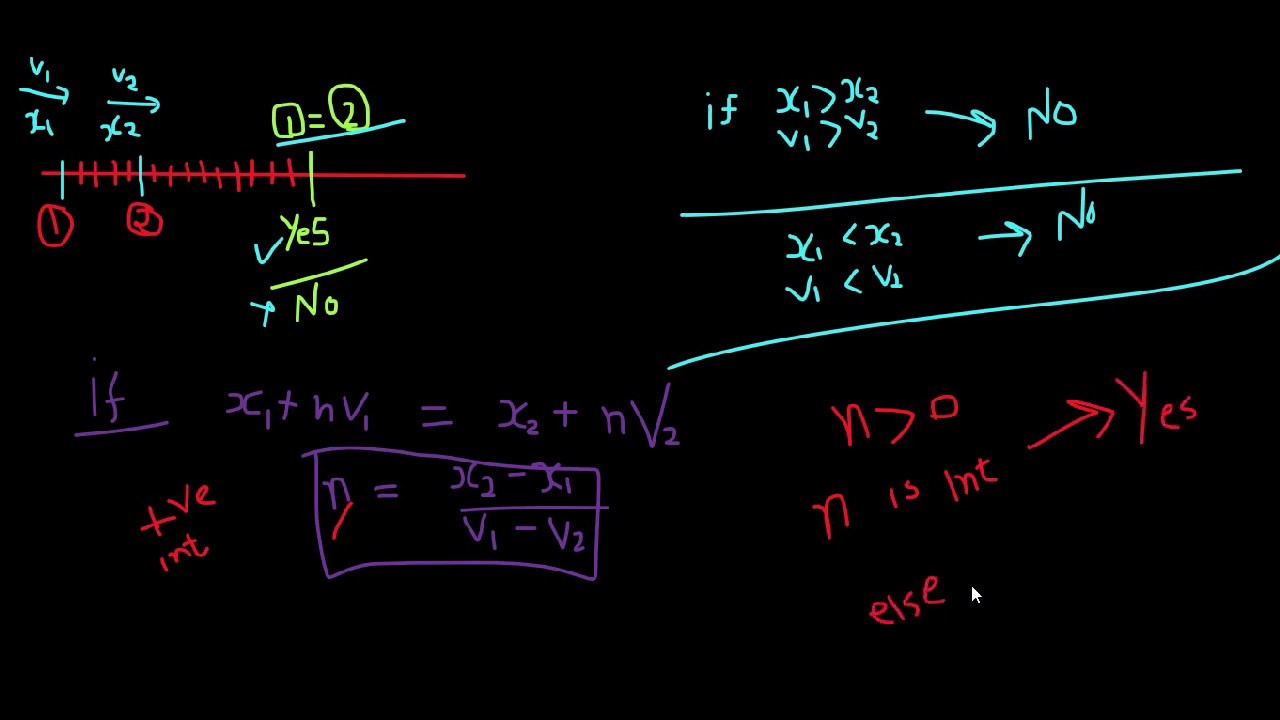 v₁ v₂
x₁ x₂
1 = 2
1 2
✓ Yes
→ No
if x₁ > x₂
v₁ > v₂ → No
x₁ < x₂
v₁ < v₂ → No
if x₁ + nv₁ = x₂ + nV₂
n = (x₂ - x₁) / (V₁ - V₂)
+ve
int
n > 0
n is Int → Yes
else